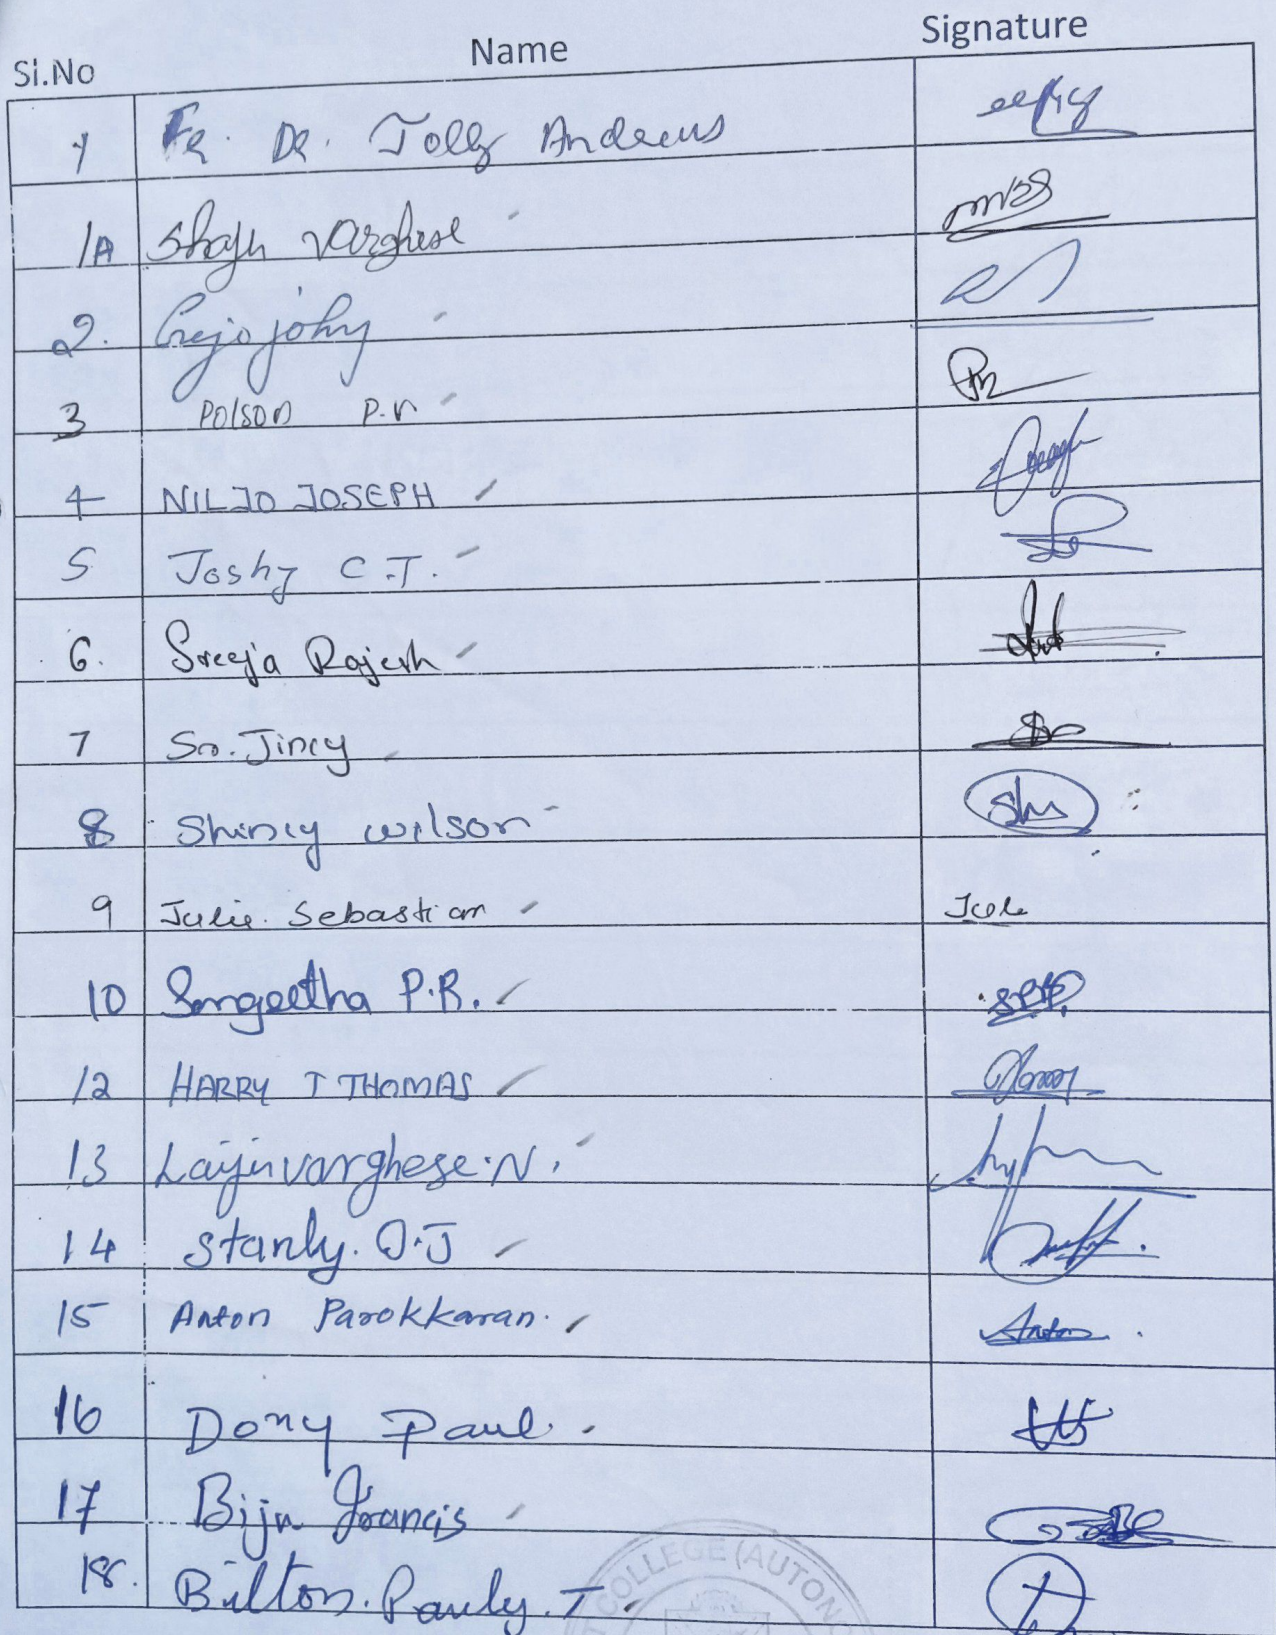 Si.No Name Signature
1 Fr. Dr. Jolly Andrews
1A Shaju Varghese
2. johy
3 POLSON P.V
4 NILJO JOSEPH
5 Joshy C.T.
6. Sreeja Rajesh
7 Sr. Jincy
8 Shincy wilson Shi
9 Julie. Sebastian Julie
10 Sangeetha P.R.
12 HARRY T THOMAS
13 Laiju varghese.N.
14 Stanly. O.J
15 Anton Parokkaran. Anton
16 Dony Paul.
17 Biju Francis
18. Bilton. Pauly. T
COLLEGE (AUTON